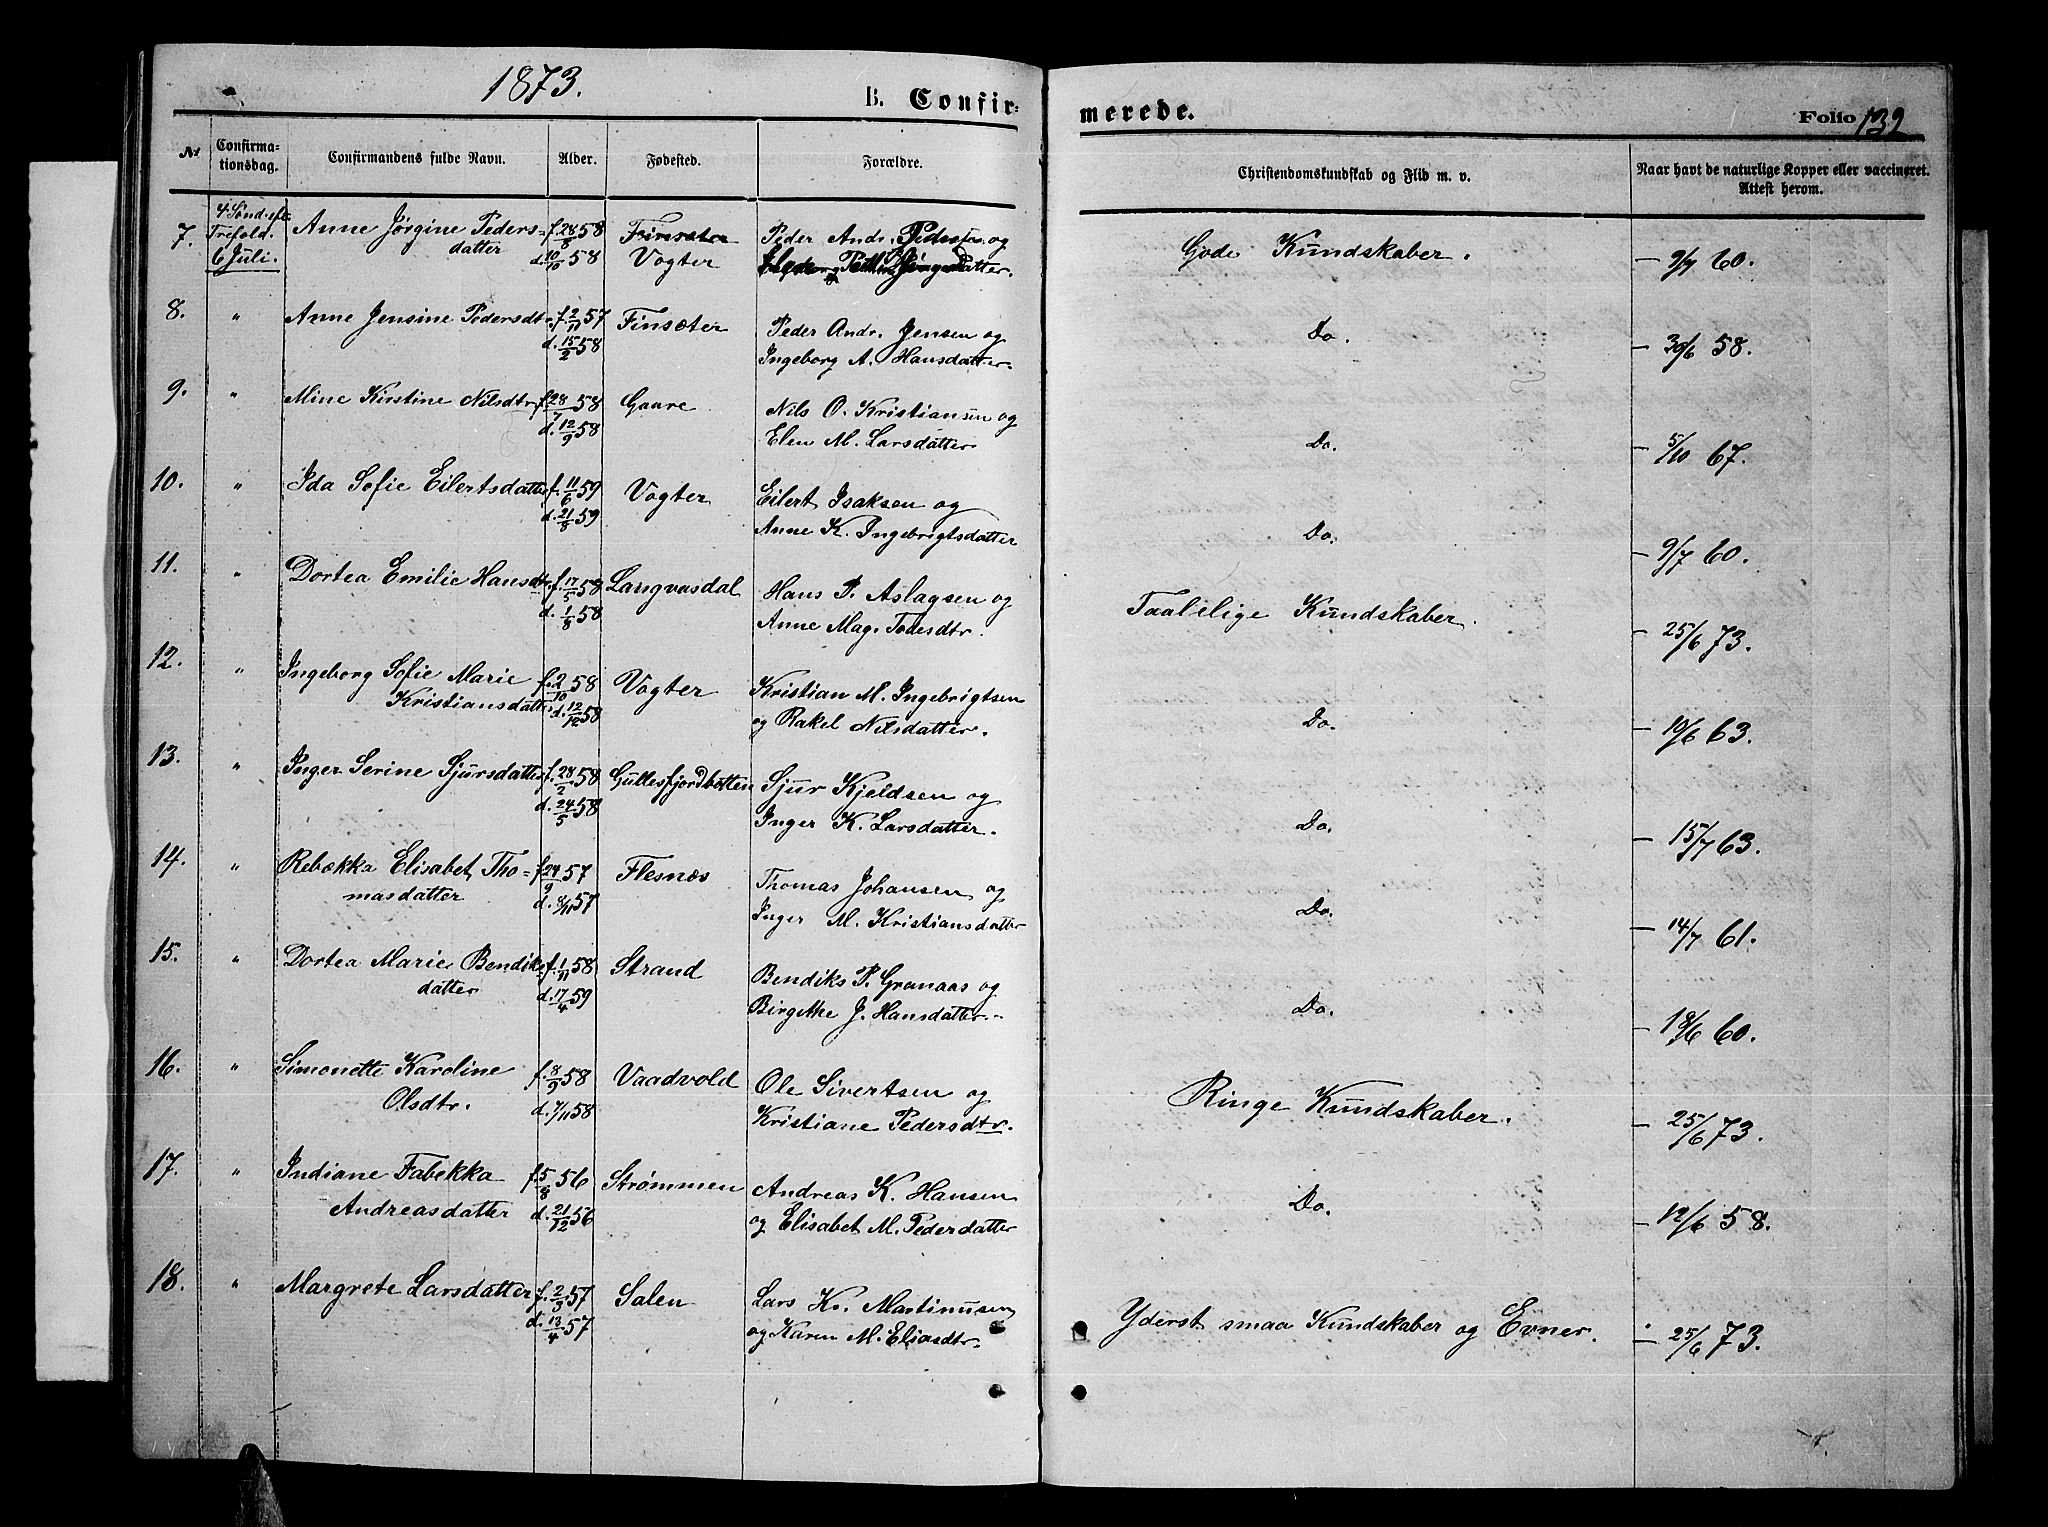 1873.
B. Confir-
merede.
Folio 132
No
Confirma-
tionsdag.
Confirmandens fulde Navn.
Alder.
Fødested.
Forældre.
Christendomskundskab og Flid m. v.
Naar havt de naturlige Kopper eller vaccineret.
Attest herom.
7.
4 Sønd. eft.
Trefold.
6 Juli.
Anne Jørgine Peders-
datter
f. 28/8 58
d. 10/10 58
Finsæter
Vogter
Peder Andr. og
Gode Kundskaber.
– 9/7 60.
8. " Anne Jensine Pedersdtr. f. 2/11 57 Finsæter Peder Andr. Jensen og
d. 15/2 58 Ingeborg A. Hansdatter.
Do. – 30/6 58.
9. " Mine Kirstine Nilsdtr. f. 28/7 58 Gaare Nils O. Kristiansen og
d. 12/9 58 Elen M. Larsdatter
Do. – 5/10 67.
10. " Ida Sofie Eilertsdatter f. 11/6 59 Vogter Eilert Isaksen og
d. 21/8 59 Anne K. Ingebrigtsdatter
Do. – 9/7 60.
11. " Dortea Emilie Hansdtr. f. 17/5 58 Langvasdal Hans P. Aslagsen og
d. 1/8 58 Anne Mag. Todesdtr.
Taalelige Kundskaber. – 25/6 73.
12. " Ingeborg Sofie Marie f. 2/10 58 Vogter Kristian M. Ingebrigtsen
Kristiansdatter d. 12/12 58 og Rakel Nilsdatter.
Do. – 10/6 63.
13. " Inger Serine Sjursdatter f. 28/2 58 Gullesfjordbotten Sjur Kjeldsen og
d. 24/5 58 Inger K. Larsdatter.
Do. – 15/7 63.
14. " Rebekka Elisabet Tho- f. 24/9 57 Flesnes Thomas Johansen og
masdatter d. 8/11 57 Inger M. Kristiansdatter
Do. – 14/7 61.
15. " Dortea Marie Bendiks- f. 1/11 58 Strand Bendiks P. Granaas og
datter d. 17/4 59 Birgitte J. Hansdatter.
Do. – 18/6 60.
16. " Simonette Karoline f. 8/9 58 Vaadvold Ole Sivertsen og
Olsdtr. d. 7/11 58 Kristiane Pedersdtr.
Ringe Kundskaber. – 25/6 73.
17. " Indiane Fabekka f. 5/8 56 Strømmen Andreas K. Hansen
Andreasdatter d. 21/12 56 og Elisabet M. Pederdatter
Do. – 12/6 58.
18. " Margrete Larsdatter f. 2/3 57 Salen Lars Kr. Martinusen
d. 13/4 57 og Karen M. Eliasdtr.
Yderst smaa Kundskaber og Evner. 25/6 73.